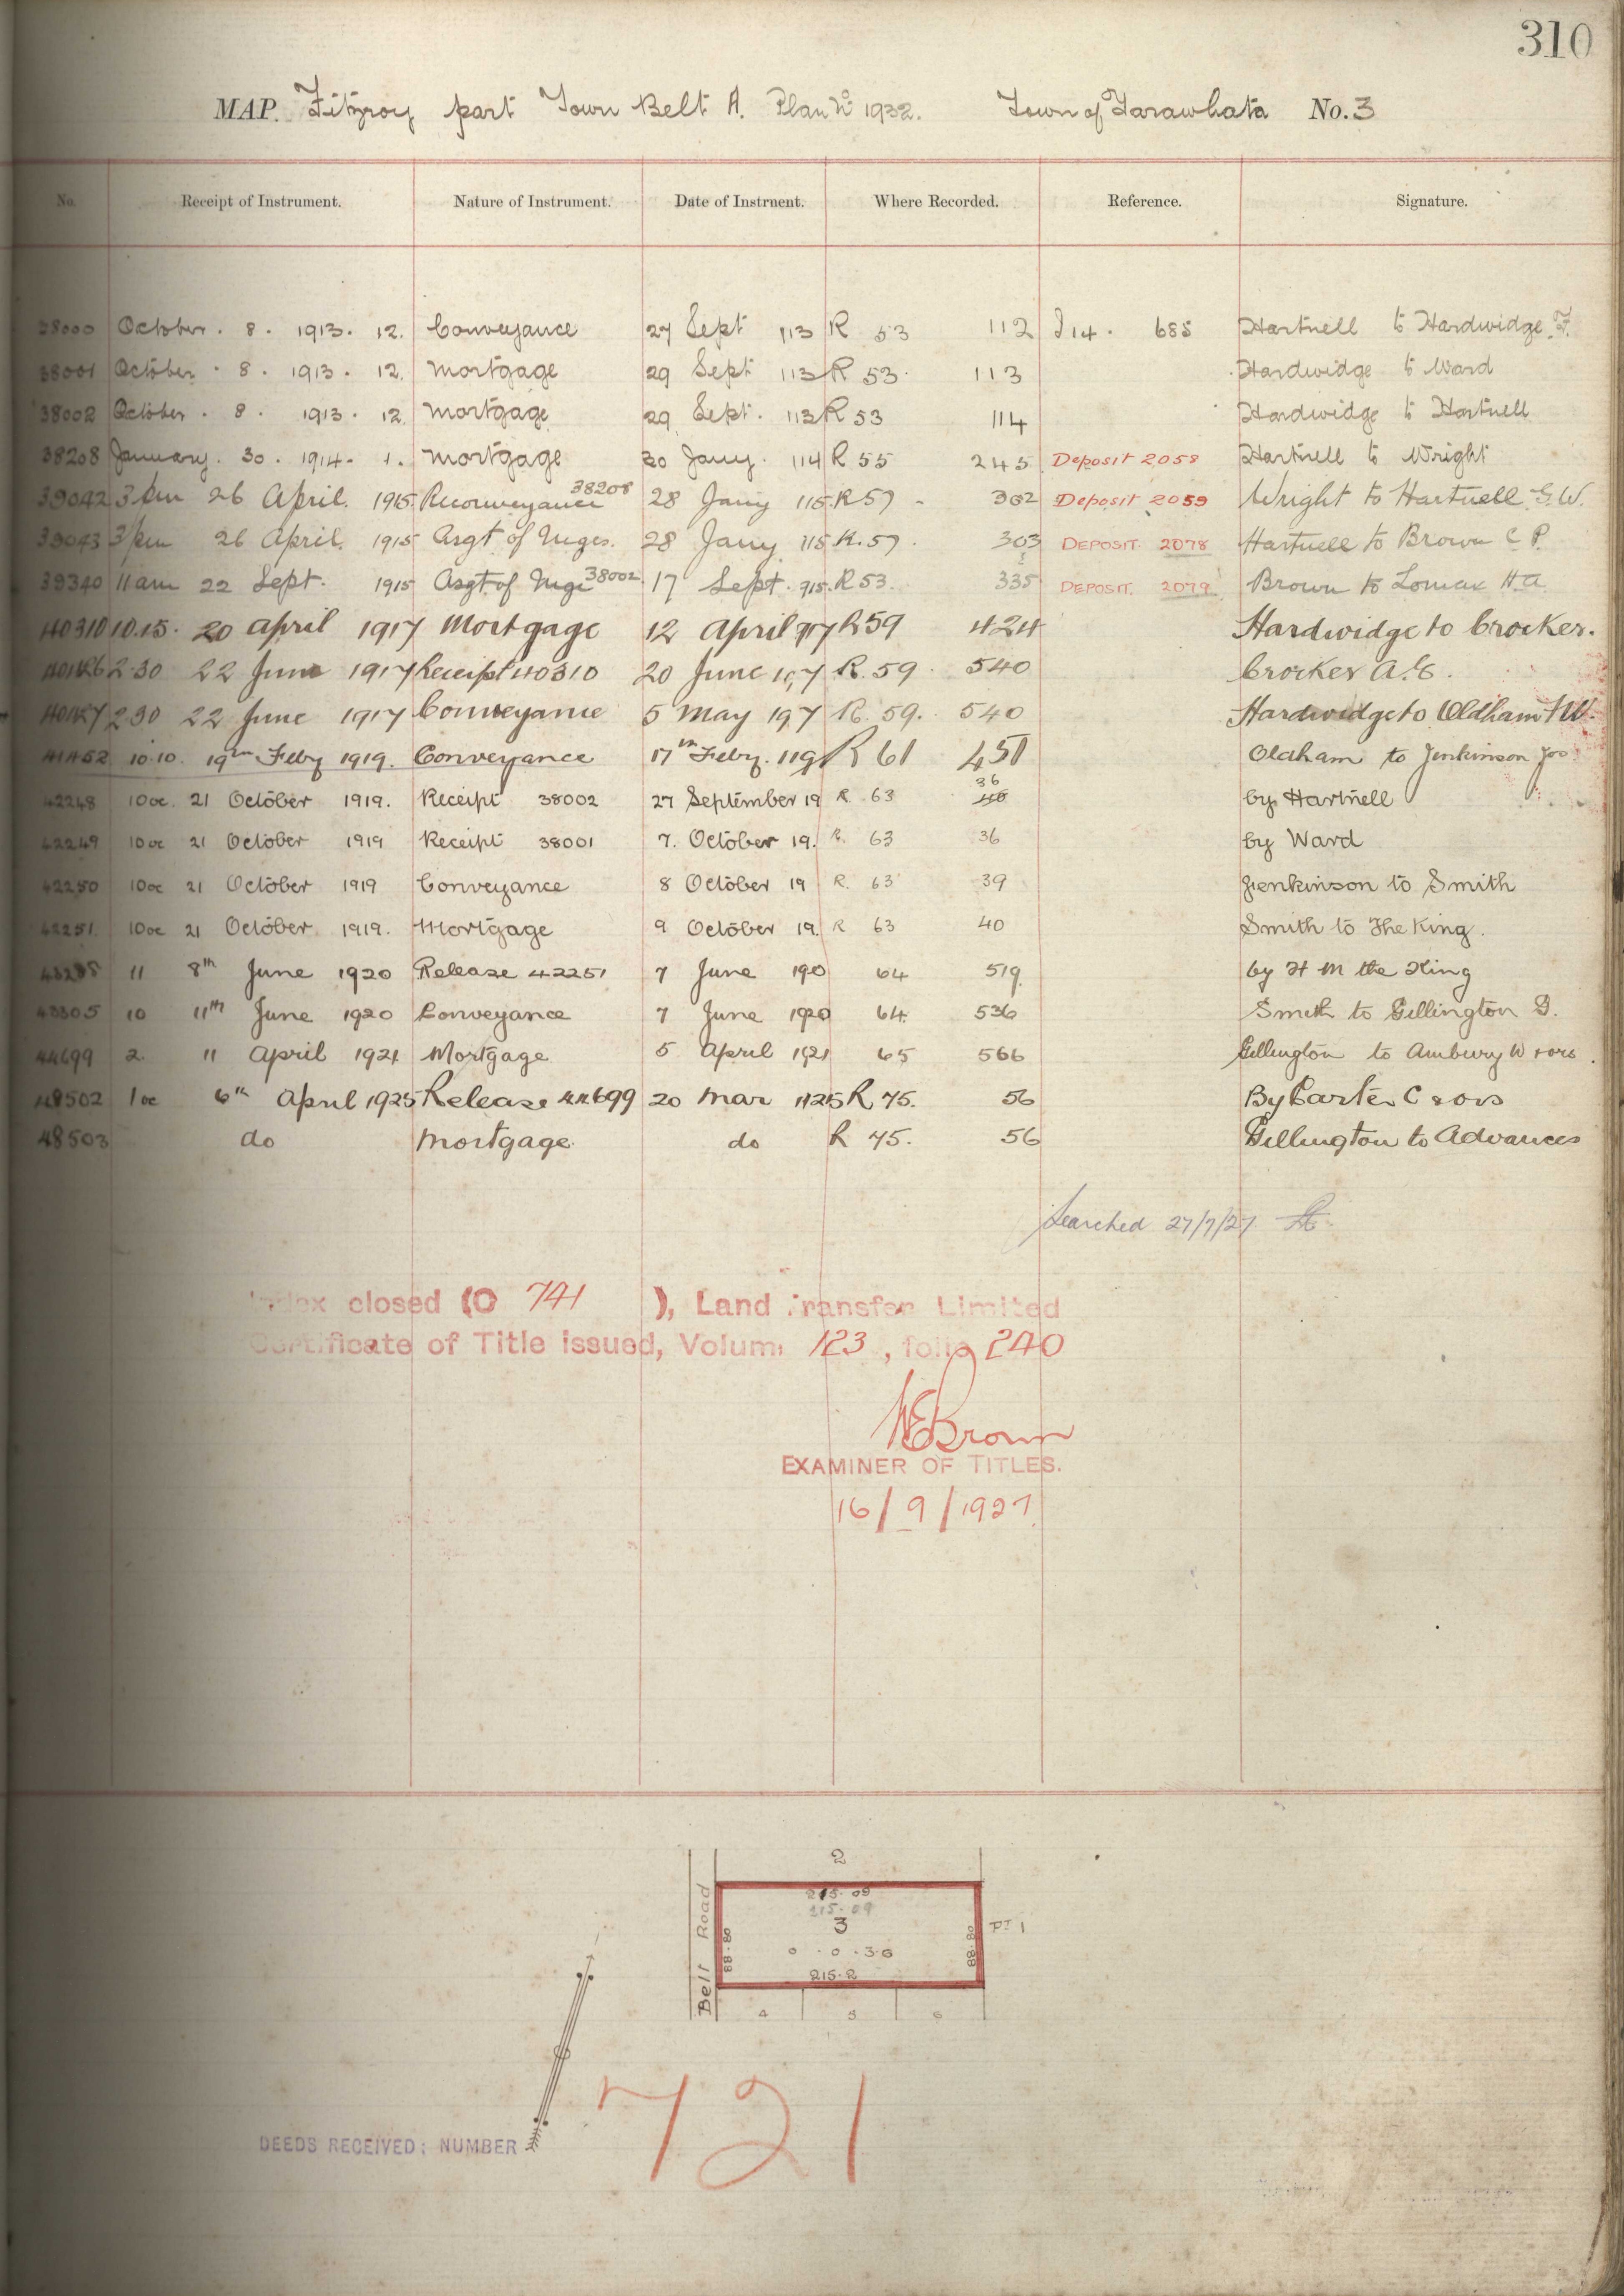 310
MAP. Fitzroy part Town Belt A. Plan No 1932. Town of Tarawhata No. 3
No. Receipt of Instrument. Nature of Instrument. Date of Instrnent. Where Recorded. Reference. Signature.
38000 October . 8 . 1913 . 12. Conveyance 27 Sept 113 R 53 112 I 14 . 685 Hartnell to Hardwidge. F.
38001 October . 8 . 1913 . 12. Mortgage 29 Sept 113 R 53. 113 Hardwidge to Ward
38002 October . 8 . 1913 . 12 Mortgage 29 Sept. 113 R 53 114 Hardwidge to Hartnell
38208 January. 30 . 1914 . 1. Mortgage 30 Jany. 114 R 55 245 Deposit 2058 Hartnell to Wright
39042 3 pm 26 April. 1915. Reconveyance 38208 28 Jany 115. R 57 - 302 Deposit 2059 Wright to Hartnell G.W.
39043 3 pm 26 April. 1915 Asgt of Mges. 28 Jany 115 R. 57. 303 DEPOSIT. 2078 Hartnell to Brown C P.
39340 11 am 22 Sept. 1915 Asgt of Mge 38002. 17 Sept. 915. R 53. 335 DEPOSIT. 2079 Brown to Lomax H.A
40310 10.15. 20 April 1917 Mortgage 12 April 917 R 59 424 Hardwidge to Crocker.
2.30 22 June 1917 Receipt 40310 20 June 17 R. 59. 540 Crocker A.E.
2.30 22 June 1917 Conveyance 5 May 197 R. 59. 540 Hardwidge to Oldham
41452 10.10. 19th Feby 1919. Conveyance 17th Feby. 119 R 61 451 Oldham to Jenkinson Jos
42248 10 oc. 21 October 1919. Receipt 38002 27 September 19 R. 63 36 by Hartnell
42249 10 oc 21 October 1919 Receipt 38001 7. October 19. R. 63 36 by Ward
42250 10 oc 21 October 1919 Conveyance 8 October 19 R. 63 39 Jenkinson to Smith
42251 10 oc 21 October 1919. Mortgage 9 October 19. R 63 40 Smith to The King.
11 8th June 1920 Release 42251 7 June 190 64 519. by H M the King
43305 10 11th June 1920 Conveyance 7 June 1920 64. 536 Smith to Gellington D.
44699 2. 11 April 1921 Mortgage 5 April 1921 65 566 Gellington to Ambury W & ors.
48502 1 oc 6th April 1925 Release 44699 20 Mar 1925 R 75. 56 By Carter C & ors
48503 do Mortgage. do R 75. 56 Gellington to Advances
Searched 27/7/27
Index closed (O 741 ), Land Transfer Limited
Certificate of Title issued, Volum 123, folio 240
W E Brown
EXAMINER OF TITLES.
16/9/1927.
2
215.09
215.09
3
0 . 0 . 36
215.2
88.80
88.80
PT 1
Belt Road
4 5 6
721
DEEDS RECEIVED: NUMBER